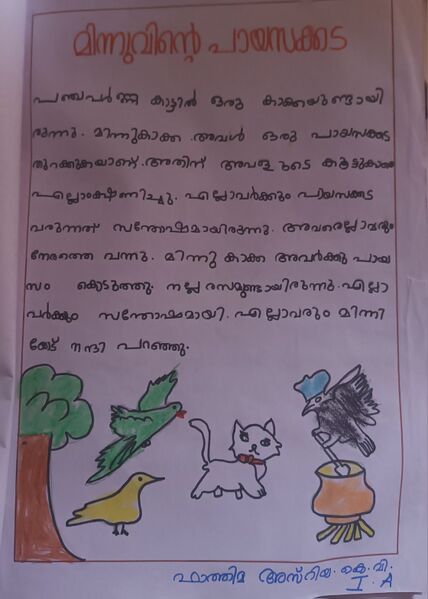 മിന്നുവിന്റെ പായസക്കട
പഞ്ചവർണ്ണ കാട്ടിൽ ഒരു കാക്കയുണ്ടായി
രുന്നു. മിന്നുകാക്ക. അവൾ ഒരു പായസക്കട
തുറക്കുകയാണ്. അതിന് അവളുടെ കൂട്ടുകാരെ
എല്ലാം ക്ഷണിച്ചു. എല്ലാവർക്കും പായസക്കട
വരുന്നത് സന്തോഷമായിരുന്നു. അവരെല്ലാവരും
നേരത്തെ വന്നു. മിന്നു കാക്ക അവർക്കു പായ
സം കൊടുത്തു. നല്ല രസമുണ്ടായിരുന്നു. എല്ലാ
വർക്കും സന്തോഷമായി. എല്ലാവരും മിന്നി
ക്ക് നന്ദി പറഞ്ഞു.
ഫാത്തിമ അസ്റിയ. കെ. വി.
I. A